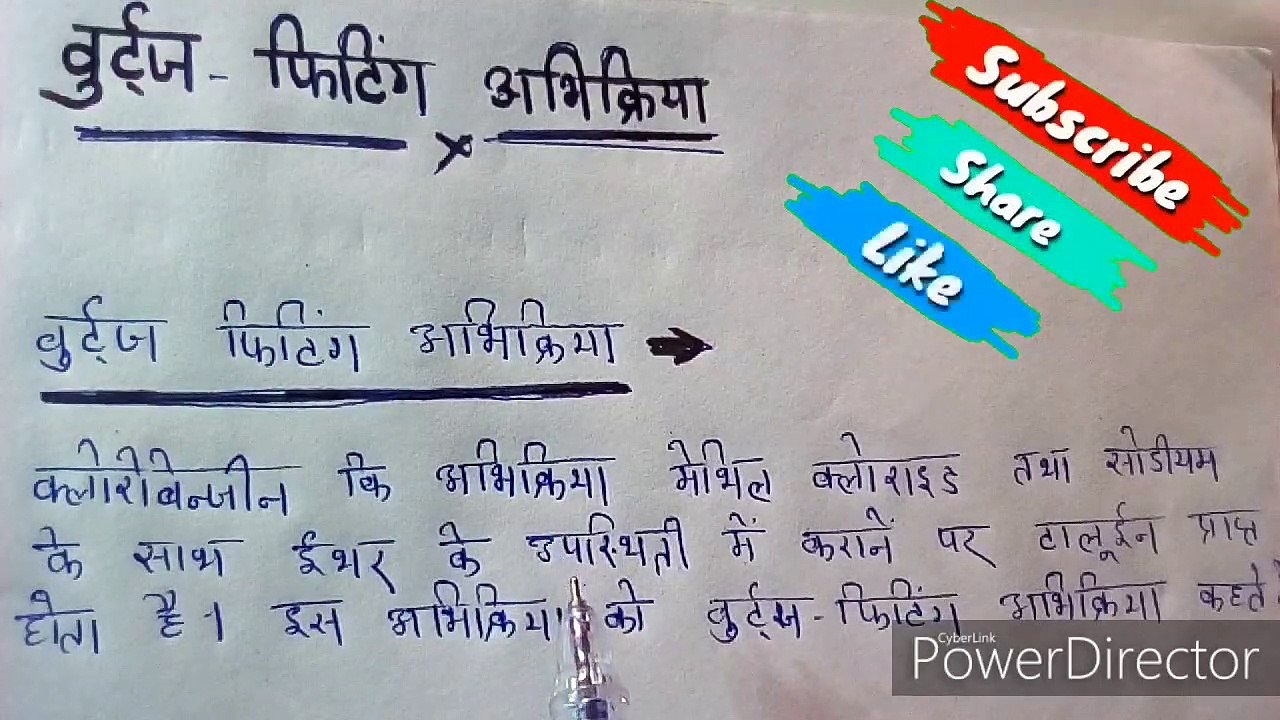 वुर्ट्ज - फिटिंग अभिक्रिया
Subscribe
Share
Like
वुर्ट्ज फिटिंग अभिक्रिया
क्लोरोबेन्जीन कि अभिक्रिया मेथिल क्लोराइड तथा सोडीयम
के साथ ईथर के उपस्थिती में कराने पर टालूईन प्राप्त
होता है । इस अभिक्रिया को वुर्ट्ज - फिटिंग अभिक्रिया कहते
CyberLink
PowerDirector